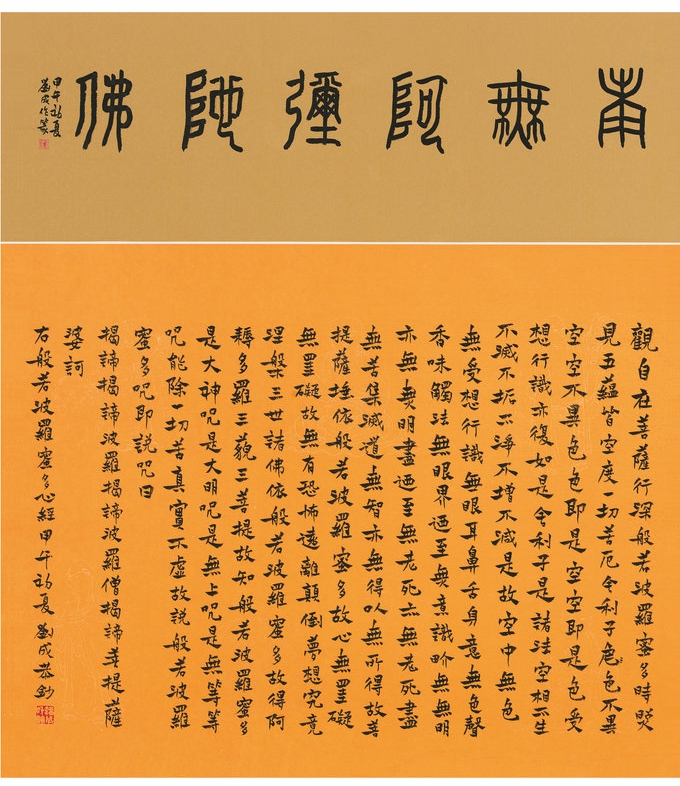 南無阿彌陁佛
甲午初夏
劉成作篆
觀自在菩薩行深般若波羅蜜多時照
見五蘊皆空度一切苦厄舍利子色色不異
空空不異色色即是空空即是色受
想行識亦復如是舍利子是諸法空相不生
不滅不垢不淨不增不減是故空中無色
無受想行識無眼耳鼻舌身意無色聲
香味觸法無眼界迺至無意識界無無明
亦無無明盡迺至無老死亦無老死盡
無苦集滅道無智亦無得以無所得故菩
提薩埵依般若波羅蜜多故心無罣礙
無罣礙故無有恐怖遠離顛倒夢想究竟
涅槃三世諸佛依般若波羅蜜多故得阿
耨多羅三藐三菩提故知般若波羅蜜多
是大神咒是大明咒是無上咒是無等等
咒能除一切苦真實不虛故說般若波羅
蜜多咒即說咒曰
揭諦揭諦波羅揭諦波羅僧揭諦菩提薩
婆訶
右般若波羅蜜多心經甲午初夏劉成恭鈔